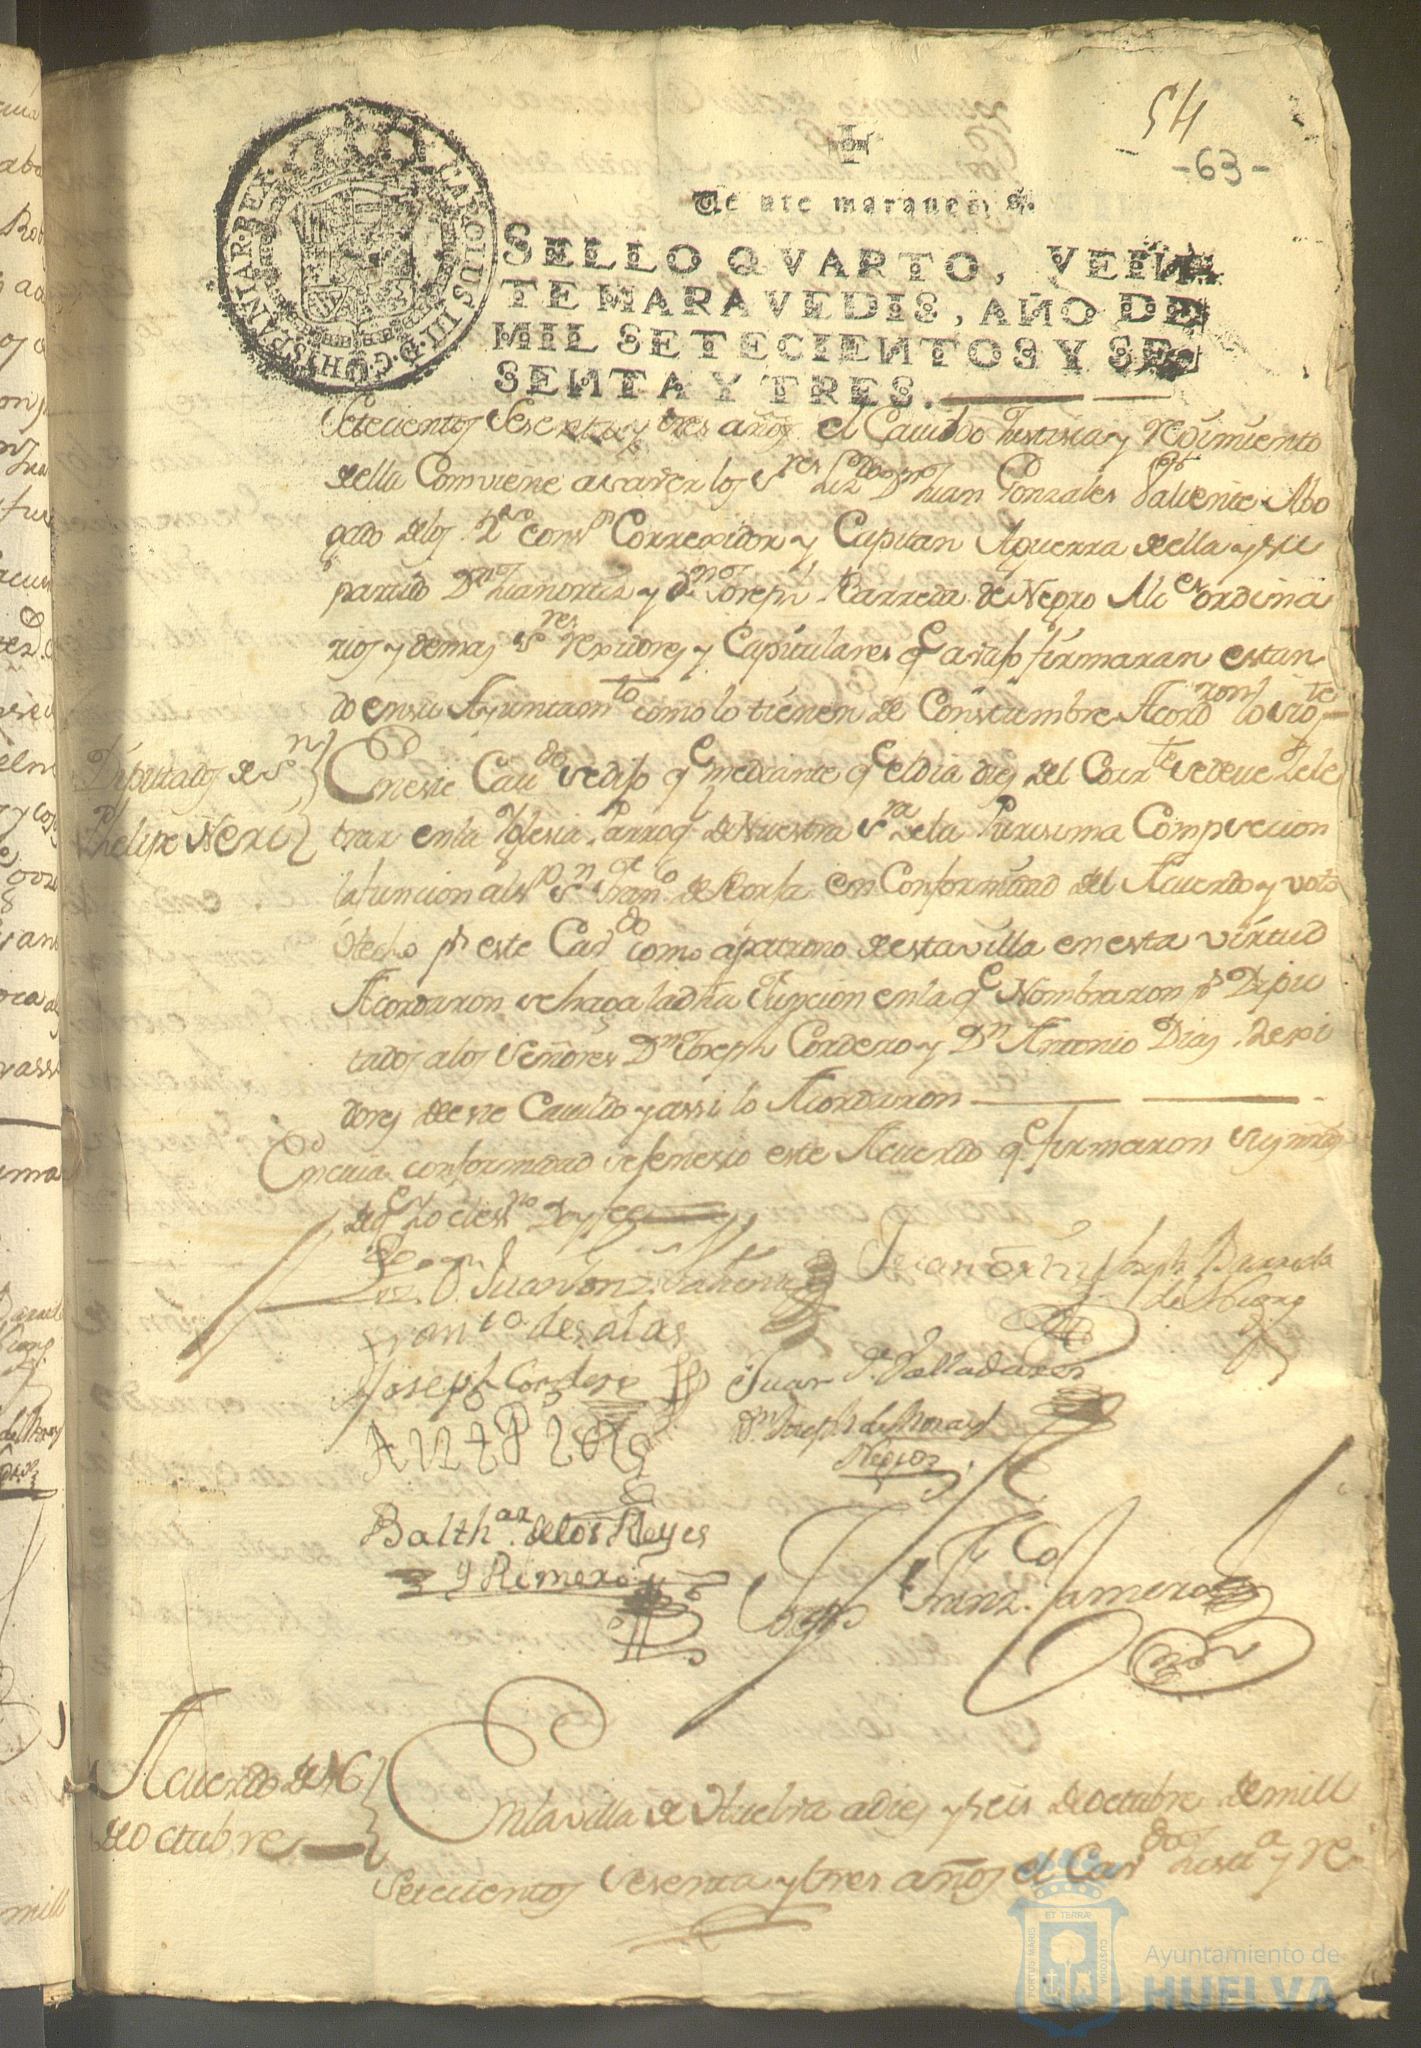 54
-63-
Veinte maravedis.
CAROLUS III D. G. HISPANIAR. REX
SELLO QVARTO, VEIN
TE MARAVEDIS, AÑO DE
MIL SETECIENTOS Y SE
SENTA Y TRES.
Setecientos Sesenta y tres años el Cavildo Justisia y reximiento
della Combiene a saver los Sres Lizdo Dn Juan Gonzales Valiente Abo
gado delos Rs conss Correxidor y Capitan Aguerra della y su
partido Dn Juan ortiz y Dn Joseph Barreda de Negro Alces ordina
rios y demas Sres rexidores y Capitulares qe avajo firmaran estan
do en su Ayuntamto como lo tienen de Constumbre Acordaron lo sigte
Diputados de Sn
Phelipe Neri
En este Cavdo se dijo qe mediante qe el dia dies del Corrte se deve Zele
brar en la Yglesia Parroql de Nuestra Sra dela Purisima Compsecion
la funcion al Sr Sn Franco de Borja en Conformidad del Acuerdo y voto
echo pr este Cavdo como a patrono de esta villa en esta virtud
Acordaron se haga la dha funcion en la qe Nombraron pr Dipu
tados a los Señores Dn Joseph Cordero y Dn Antonio Dias rexi
dores de este Cavildo y assi lo Acordaron
En cuia conformidad se fenesio este Acuerdo qe firmaron sus mrds
de qe Yo el essno Doy fee
Lizdo Dn Juan Gonz. Valiente
Juan Ortiz
Joseph Barreda
de Negro
Franco de salas
Joseph Cordero
Juan Valladares
Ant Diaz
Dn Joseph de Mora y
Negron
Balthar de los Reyes
y Rimero
Joseph Franco
Frnz. Camero
Acuerdo de 16
de octubre
En la villa de Huelva a dies y seis de octubre de mill
Setecientos Sesenta y tres años el Cavdo Justa y re
PORTUS MARIS
ET TERRAE
CUSTODIA
Ayuntamiento de
HUELVA